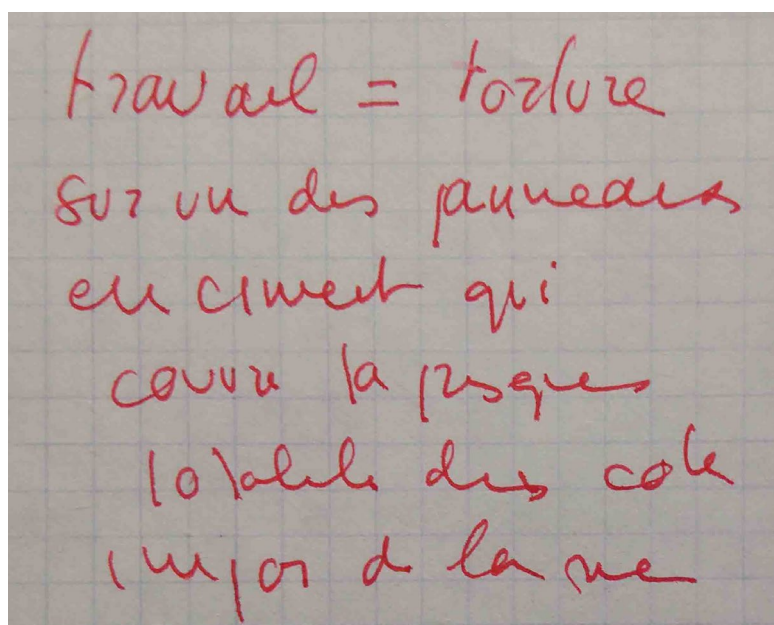 travail = torture
sur un des panneaux
en ciment qui
couvre la presque
totalité des cote
impair de la rue